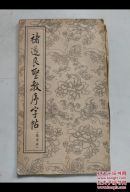 褚遂良聖教序字帖